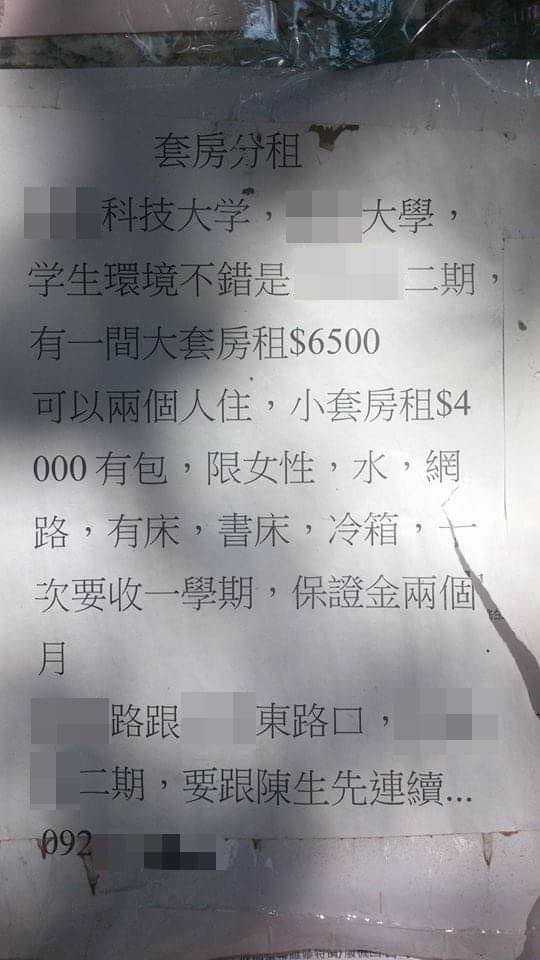 套房分租
科技大学，大學，
学生環境不錯是二期，
有一間大套房租$6500
可以兩個人住，小套房租$4
000有包，限女性，水，網
路，有床，書床，冷箱，一
次要收一學期，保證金兩個
月
路跟東路口，
二期，要跟陳生先連續...
092